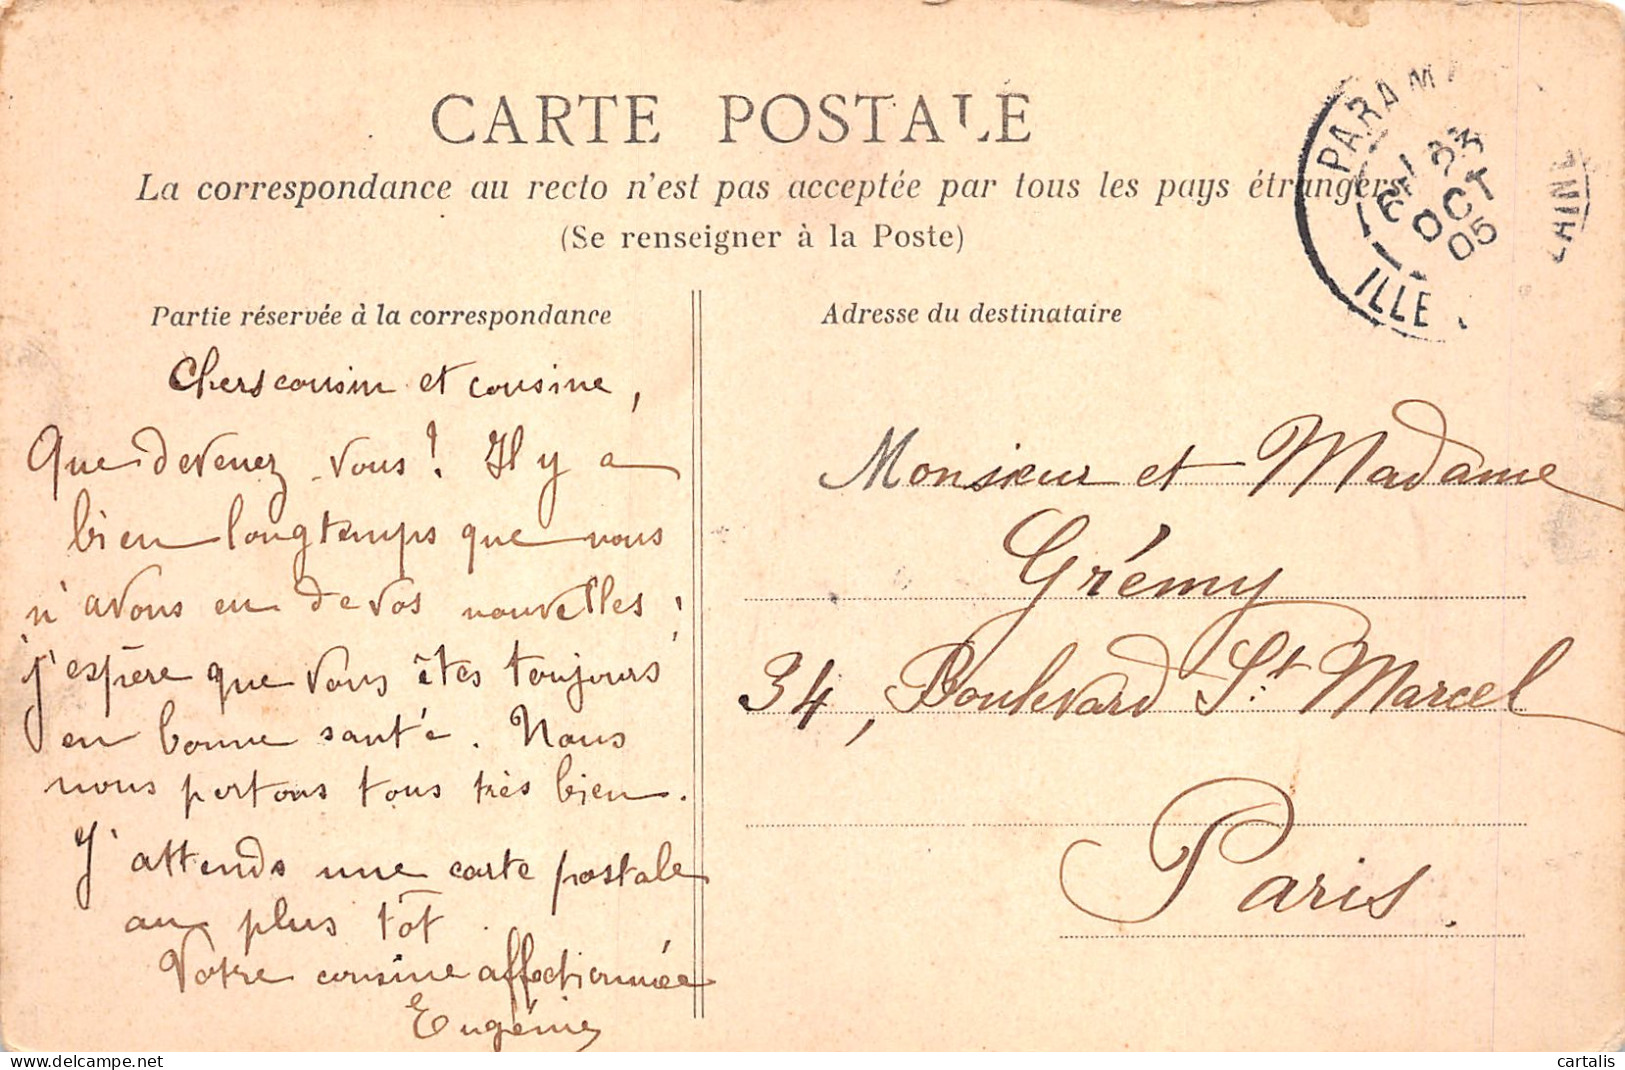 CARTE POSTALE
La correspondance au recto n'est pas acceptée par tous les pays étrangers
(Se renseigner à la Poste)
Partie réservée à la correspondance
Chers cousin et cousine,
Que devenez-vous! Il y a
bien longtemps que nous
n'avons eu de vos nouvelles,
j'espère que vous êtes toujours
en bonne santé. Nous
nous portons tous très bien.
J'attends une carte postale
au plus tôt.
Votre cousine affectionnée
Eugénie
Adresse du destinataire
Monsieur et Madame
Grémy
34, Boulevard St Marcel
Paris.
PARAM
OCT
05
ILLE
cartalis